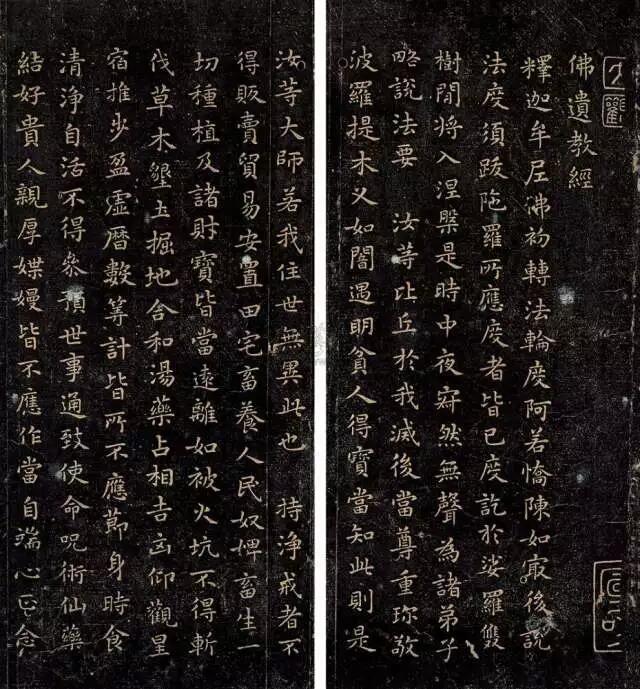 佛遺教經
釋迦牟尼佛初轉法輪度阿若憍陳如㝡後說
法度須跋陁羅所應度者皆已度訖於娑羅雙
樹間將入涅槃是時中夜寂然無聲為諸弟子
略說法要 汝等比丘於我滅後當尊重珎敬
波羅提木叉如闇遇明貧人得寶當知此則是
汝等大師若我住世無異此也 持浄戒者不
得販賣貿易安置田宅畜養人民奴婢畜生一
切種植及諸財寶皆當遠離如被火坑不得斬
伐草木墾土掘地合和湯藥占相吉凶仰觀星
宿推步盈虛曆數筭計皆所不應莭身時食
清浄自活不得叅預世事通致使命呪術仙藥
結好貴人親厚媟嫚皆不應作當自端心正念